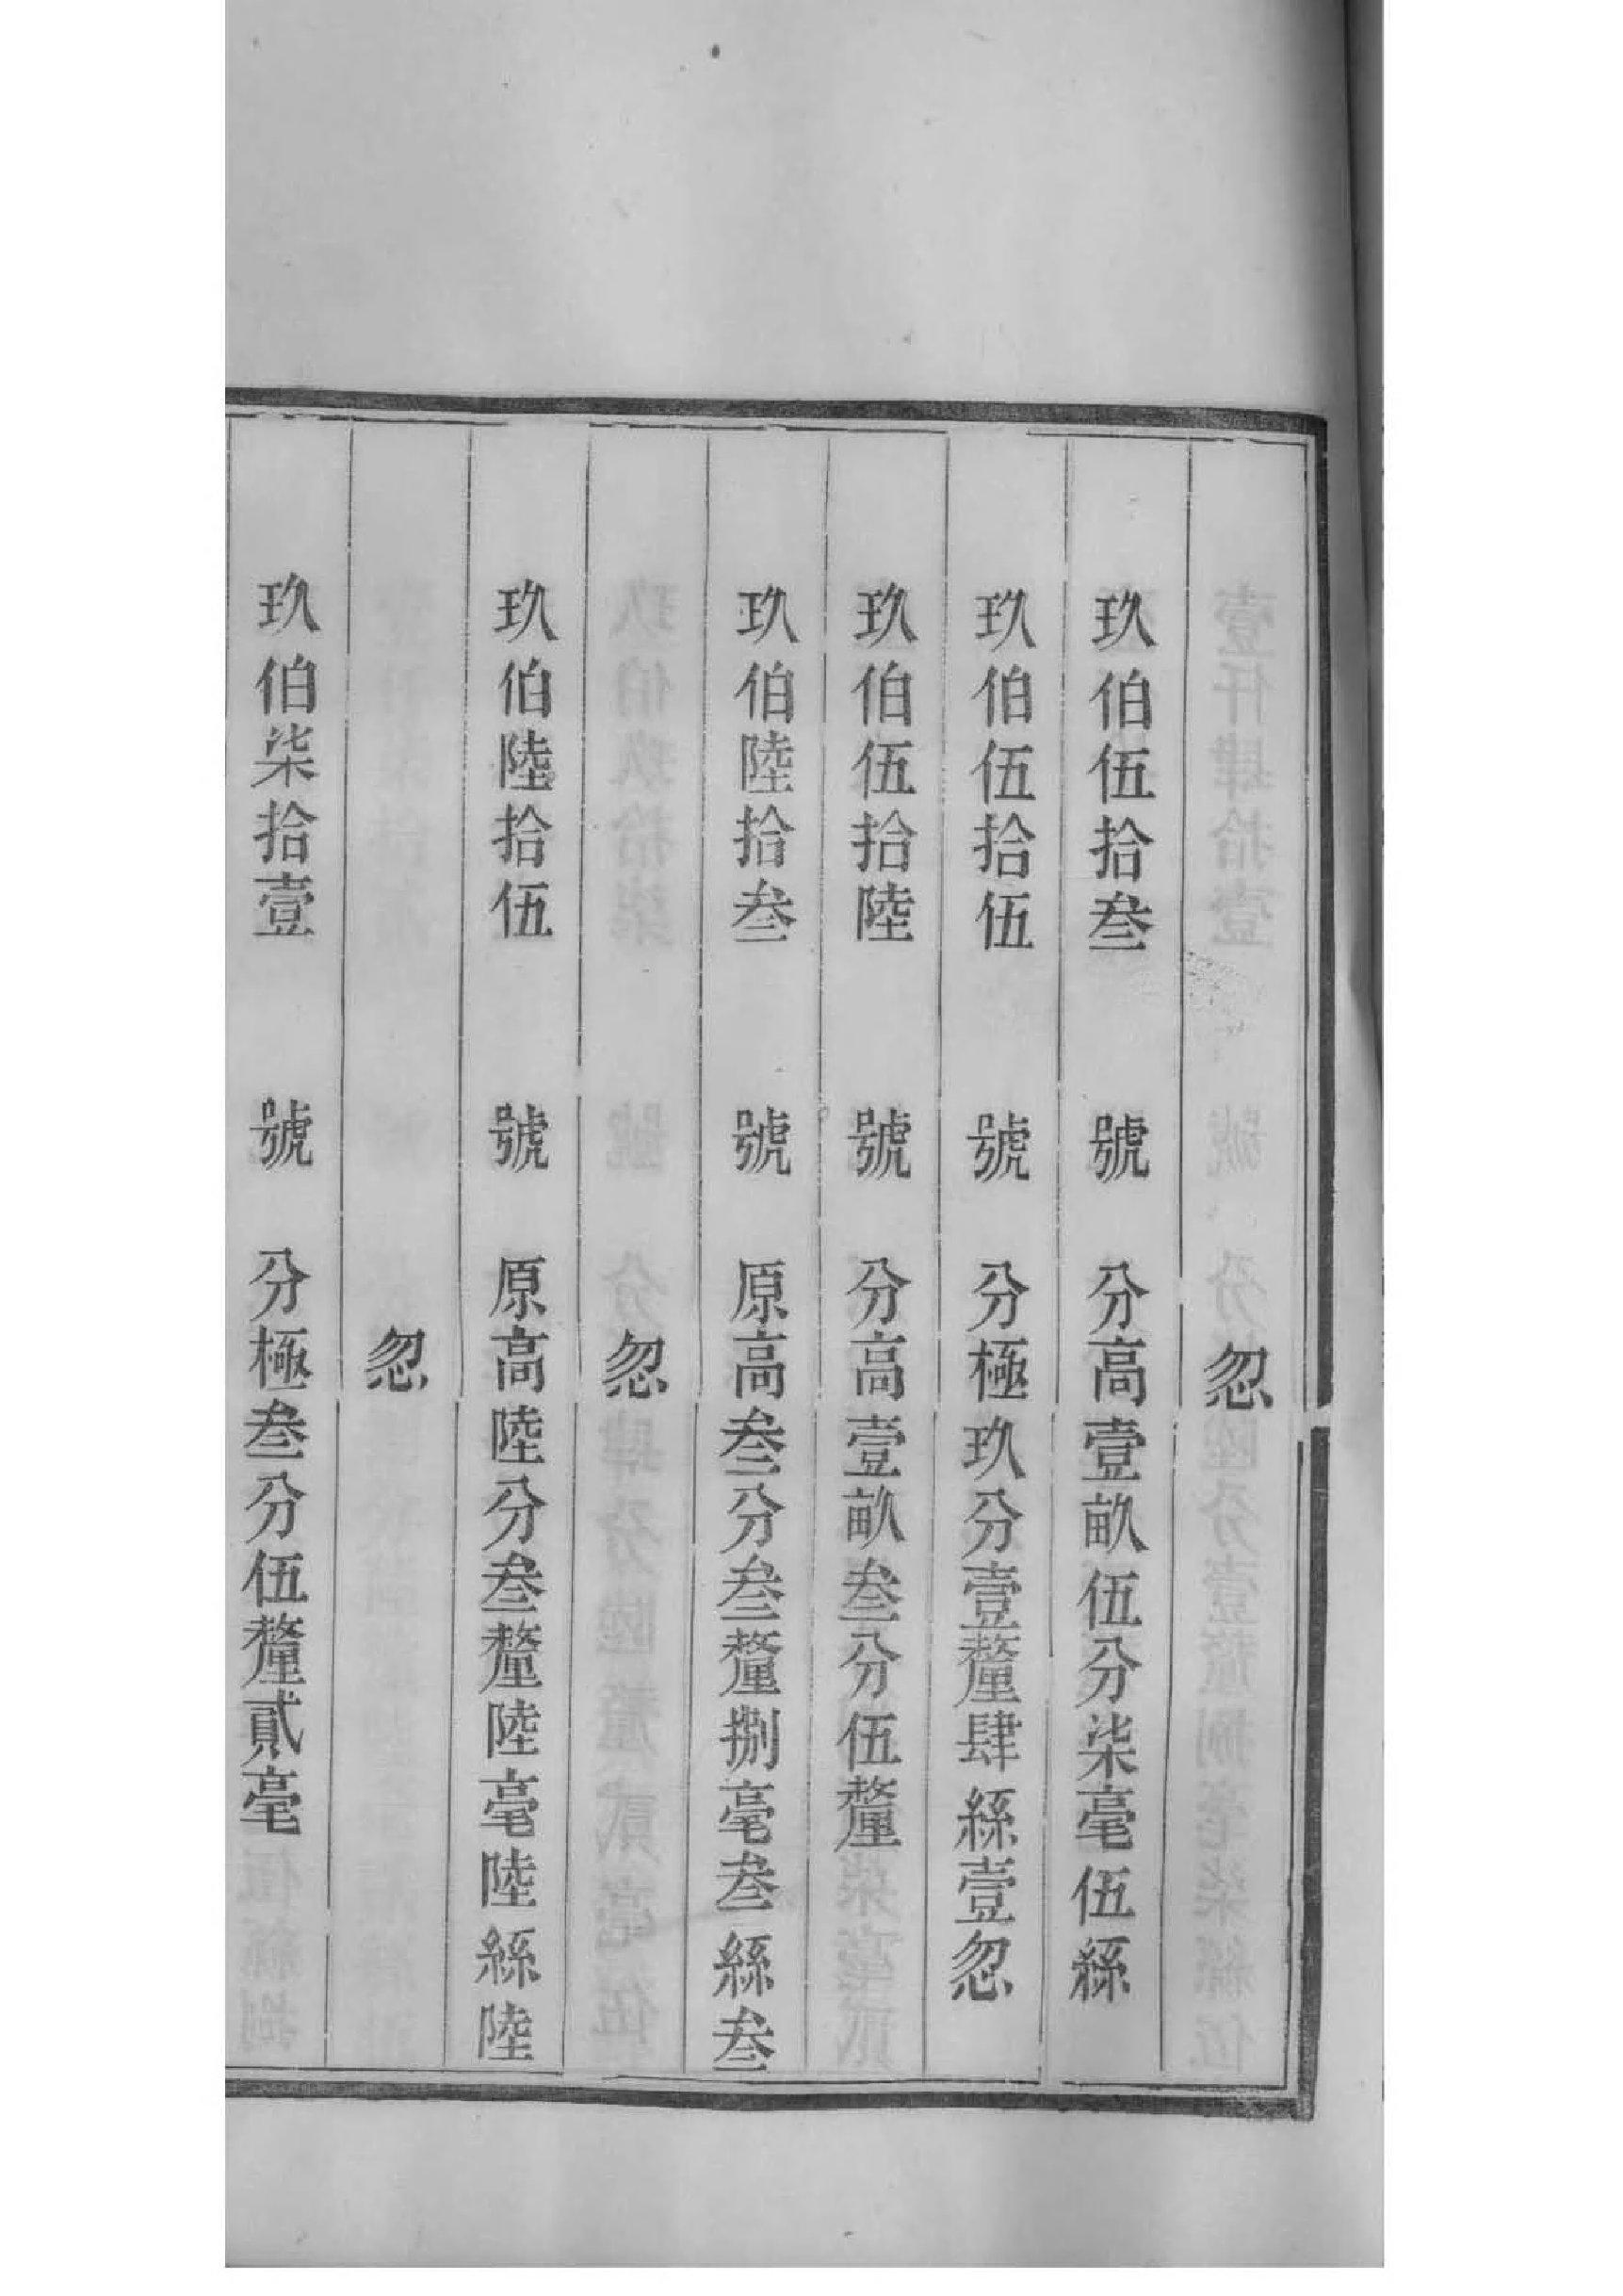 忽
玖伯伍拾叁 號 分高壹畝伍分柒毫伍絲
玖伯伍拾伍 號 分極玖分壹釐肆絲壹忽
玖伯伍拾陸 號 分高壹畝叁分伍釐
玖伯陸拾叁 號 原高叁分叁釐捌毫叁絲叁
忽
玖伯陸拾伍 號 原高陸分叁釐陸毫陸絲陸
忽
玖伯柒拾壹 號 分極叁分伍釐貳毫